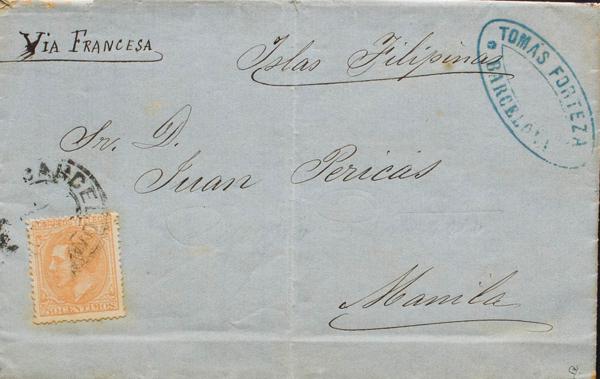 VIA FRANCESA
Islas Filipinas
TOMÁS FORTEZA
BARCELONA
Sr. D.
Juan Pericás
BARCEL
50 CENTIMOS
Manila